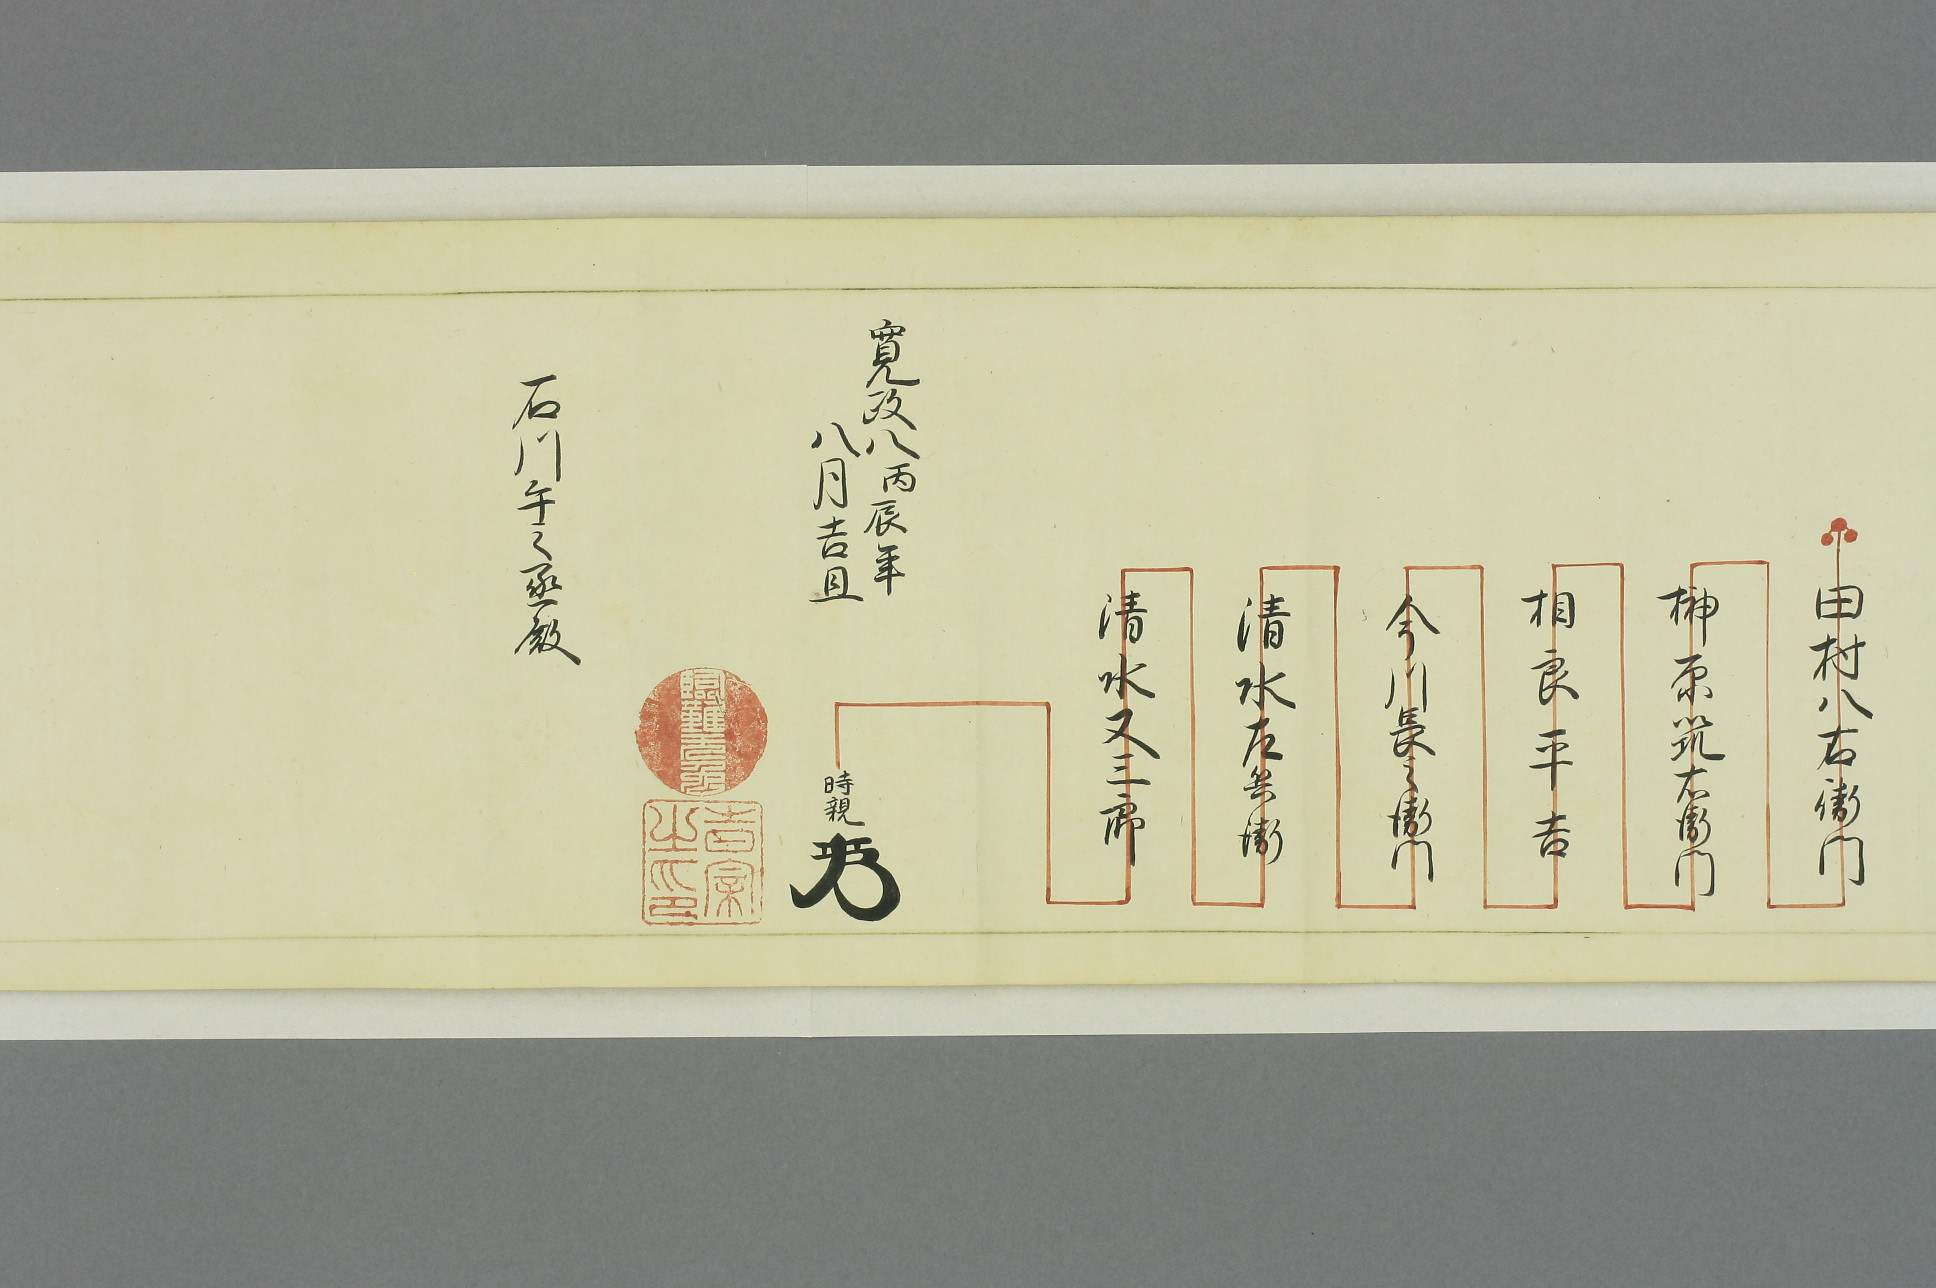 田村八右衛門
榊原筑右衛門
相良平吉
今川長之衛門
清水左兵衛
清水又三郎
寛政八丙辰年
八月吉旦
時親
吉宗
之印
石川午之丞殿